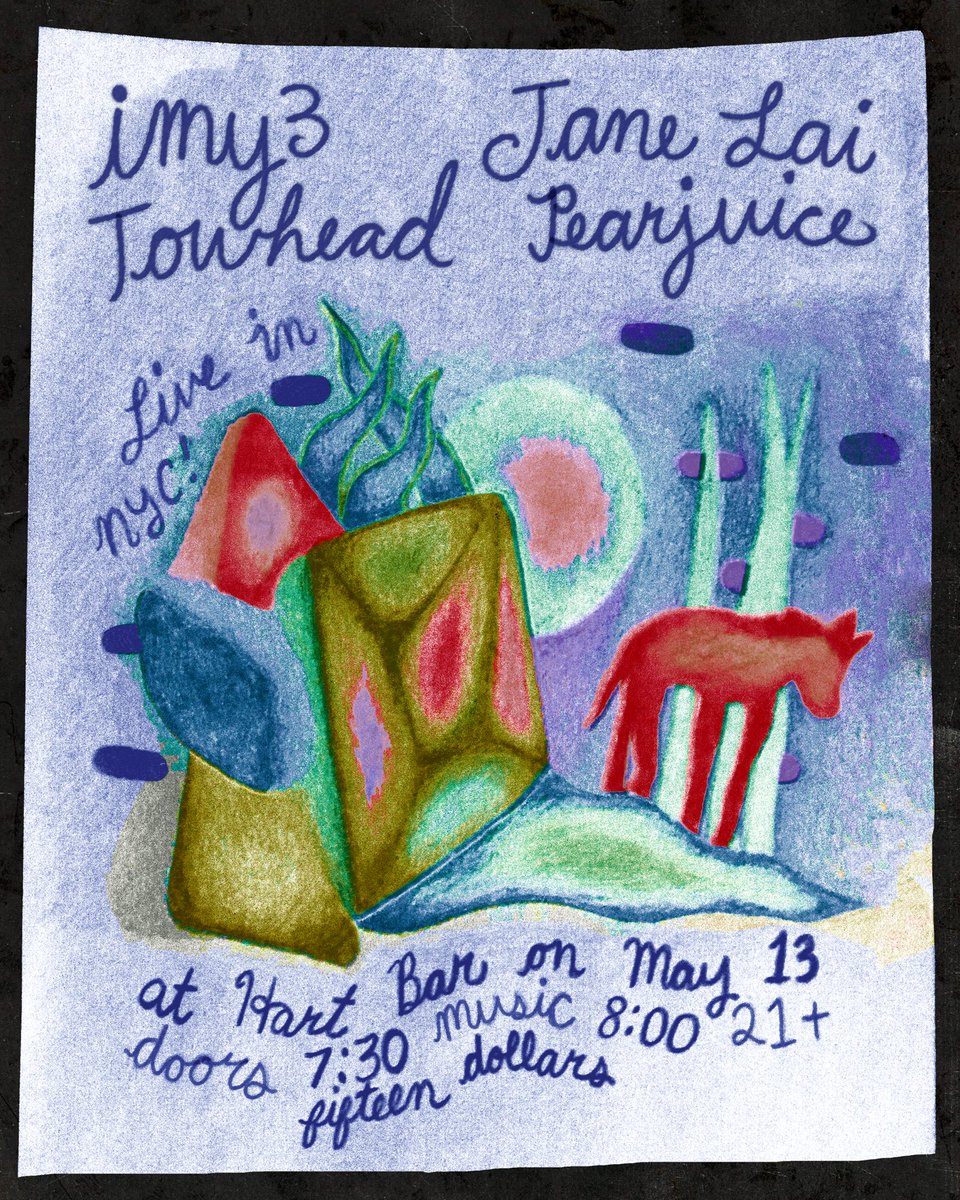 imy3 Jane Lai
Towhead Pearjuice
Live in
nyc!
at Hart Bar on May 13
doors 7:30 music 8:00 21+
fifteen dollars